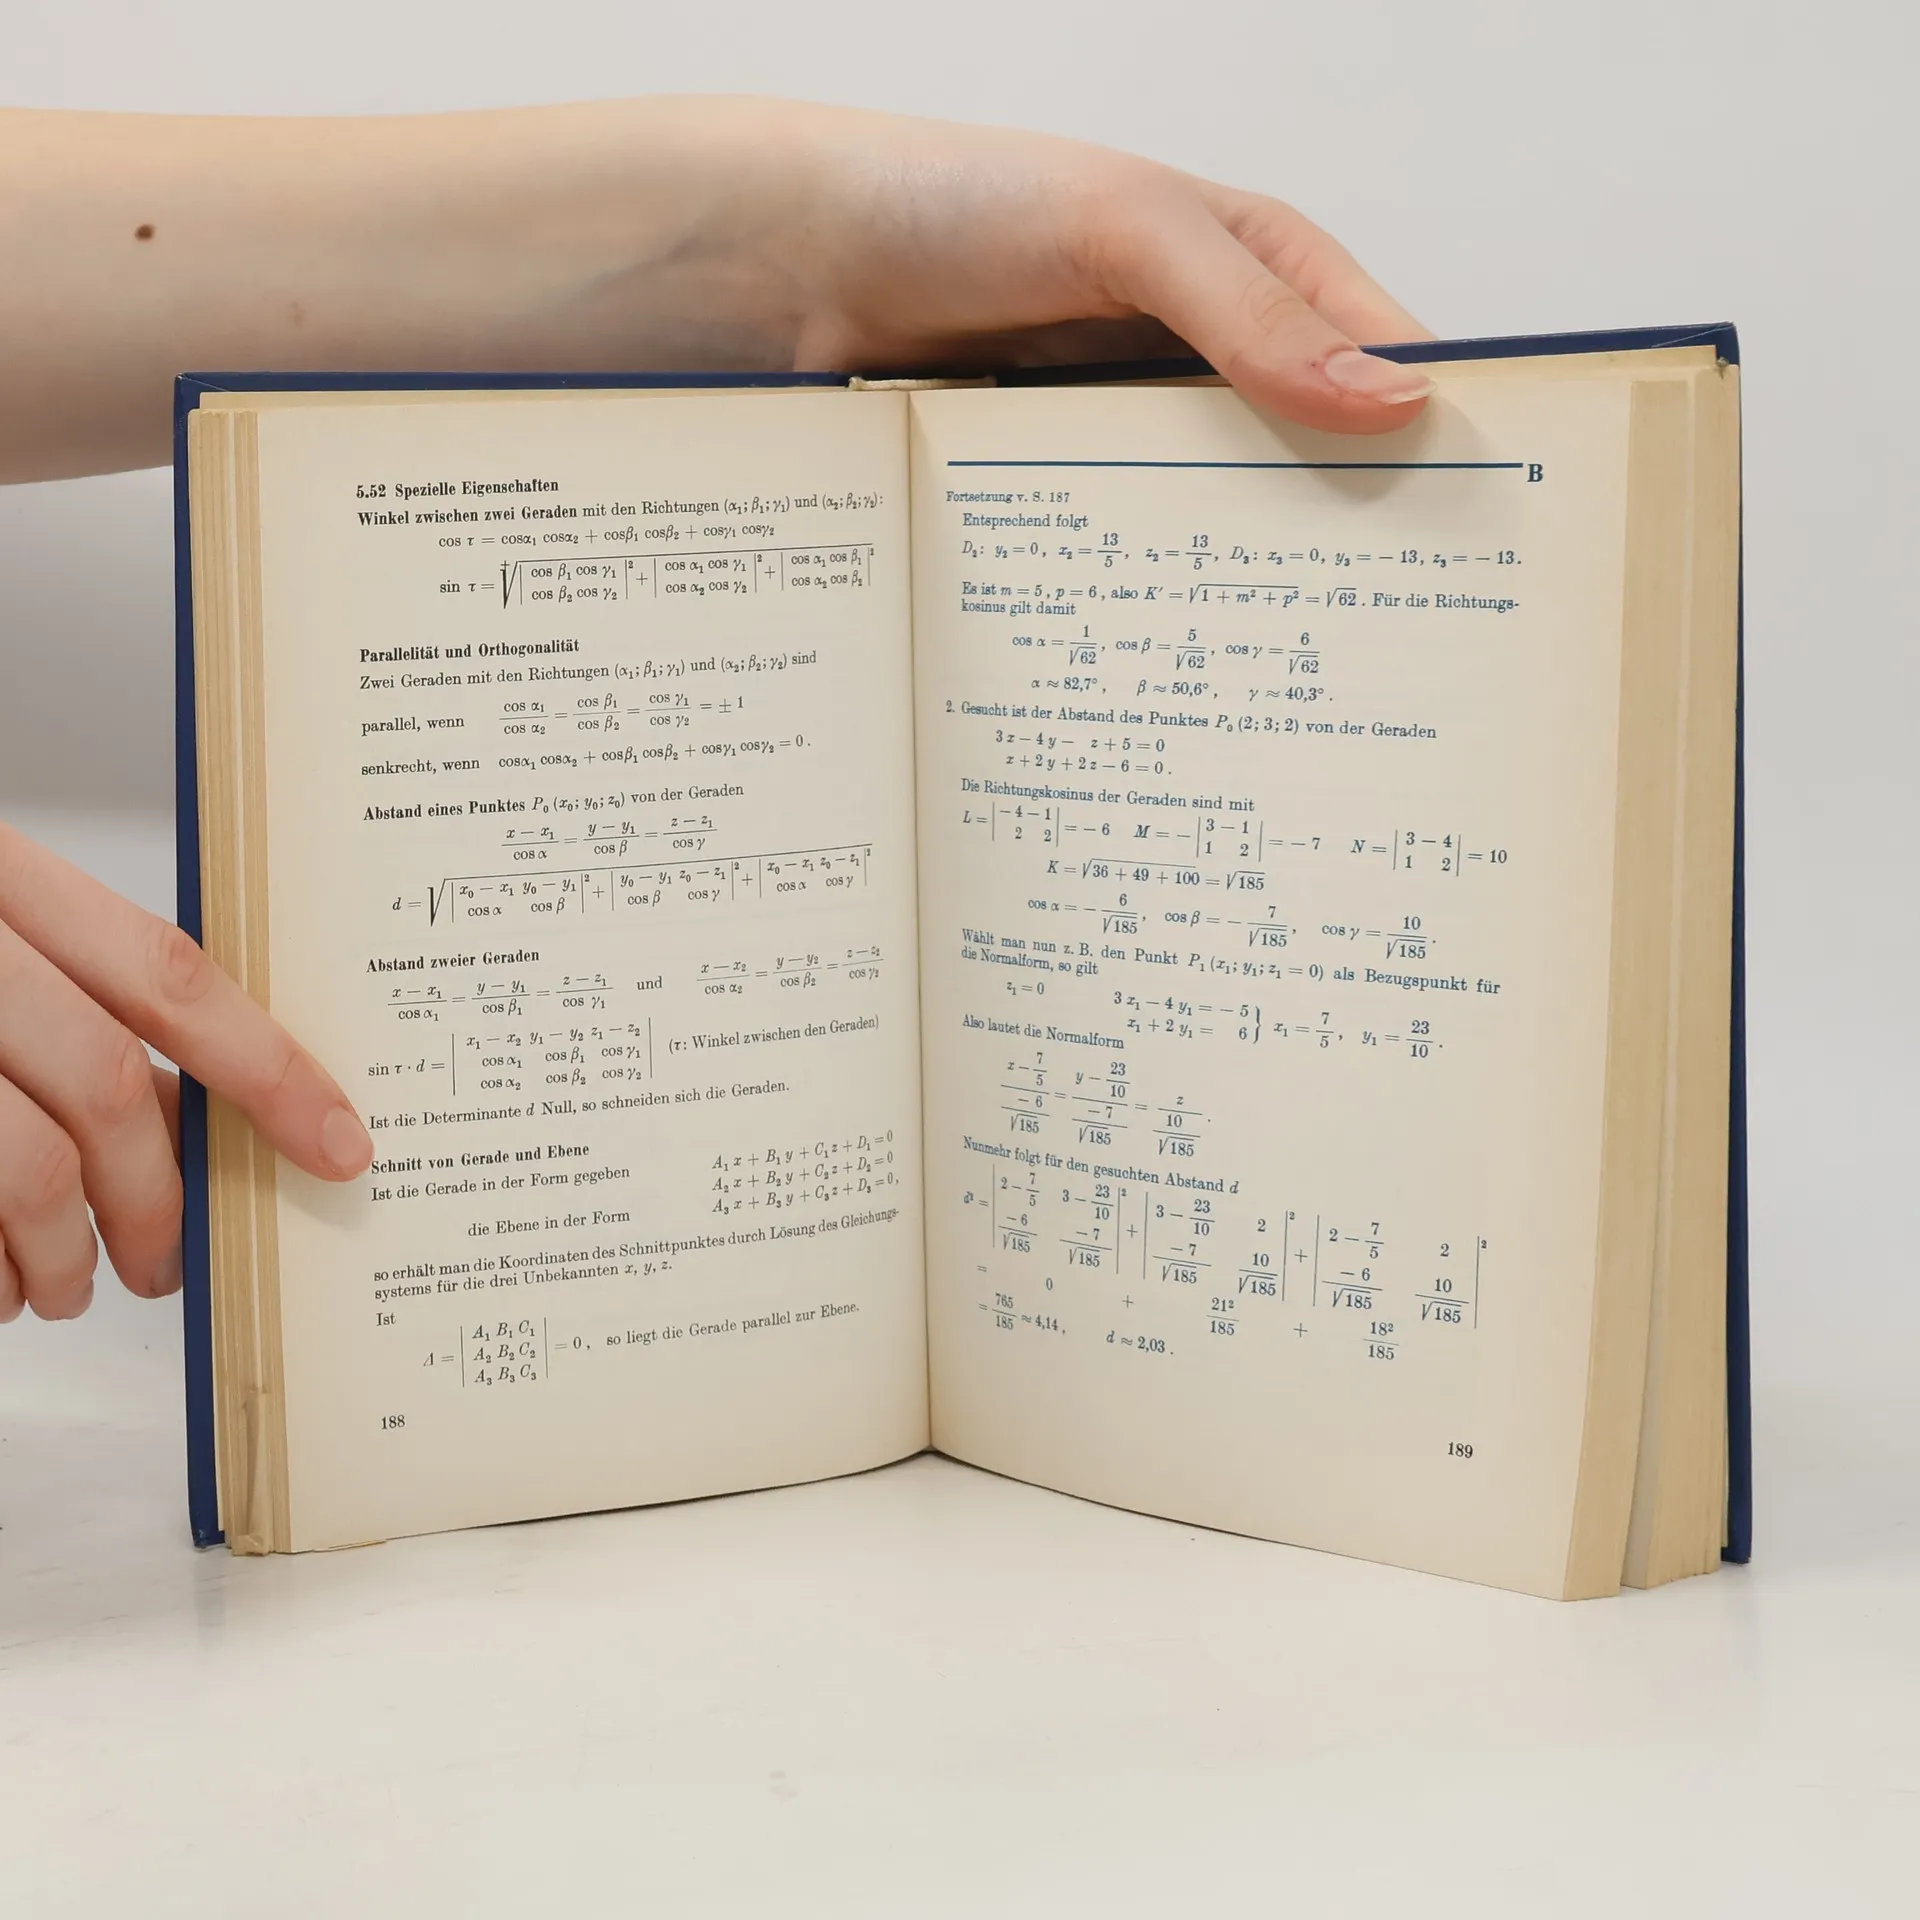 5.52 Spezielle Eigenschaften
Winkel zwischen zwei Geraden mit den Richtungen (α₁; β₁; γ₁) und (α₂; β₂; γ₂):
cos τ = cosα₁ cosα₂ + cosβ₁ cosβ₂ + cosγ₁ cosγ₂
sin τ = +√( |cos β₁ cos γ₁; cos β₂ cos γ₂|² + |cos α₁ cos γ₁; cos α₂ cos γ₂|² + |cos α₁ cos β₁; cos α₂ cos β₂|² )
Parallelität und Orthogonalität
Zwei Geraden mit den Richtungen (α₁; β₁; γ₁) und (α₂; β₂; γ₂) sind
parallel, wenn cos α₁/cos α₂ = cos β₁/cos β₂ = cos γ₁/cos γ₂ = ± 1
senkrecht, wenn cosα₁ cosα₂ + cosβ₁ cosβ₂ + cosγ₁ cosγ₂ = 0.
Abstand eines Punktes P₀ (x₀; y₀; z₀) von der Geraden
(x − x₁)/cos α = (y − y₁)/cos β = (z − z₁)/cos γ
d = √( |x₀ − x₁ y₀ − y₁; cos α cos β|² + |y₀ − y₁ z₀ − z₁; cos β cos γ|² + |x₀ − x₁ z₀ − z₁; cos α cos γ|² )
Abstand zweier Geraden
(x − x₁)/cos α₁ = (y − y₁)/cos β₁ = (z − z₁)/cos γ₁ und (x − x₂)/cos α₂ = (y − y₂)/cos β₂ = (z − z₂)/cos γ₂
sin τ · d = |x₁ − x₂ y₁ − y₂ z₁ − z₂; cos α₁ cos β₁ cos γ₁; cos α₂ cos β₂ cos γ₂| (τ: Winkel zwischen den Geraden)
Ist die Determinante d Null, so schneiden sich die Geraden.
Schnitt von Gerade und Ebene
Ist die Gerade in der Form gegeben A₁ x + B₁ y + C₁ z + D₁ = 0
A₂ x + B₂ y + C₂ z + D₂ = 0
die Ebene in der Form A₃ x + B₃ y + C₃ z + D₃ = 0,
so erhält man die Koordinaten des Schnittpunktes durch Lösung des Gleichungs-
systems für die drei Unbekannten x, y, z.
Ist
Δ = |A₁ B₁ C₁; A₂ B₂ C₂; A₃ B₃ C₃| = 0, so liegt die Gerade parallel zur Ebene.
188
B
Fortsetzung v. S. 187
Entsprechend folgt
D₂: y₂ = 0, x₂ = 13/5, z₂ = 13/5, D₃: x₃ = 0, y₃ = − 13, z₃ = − 13.
Es ist m = 5, p = 6, also K′ = √(1 + m² + p²) = √62. Für die Richtungs-
kosinus gilt damit
cos α = 1/√62, cos β = 5/√62, cos γ = 6/√62
α ≈ 82,7°, β ≈ 50,6°, γ ≈ 40,3°.
2. Gesucht ist der Abstand des Punktes P₀ (2; 3; 2) von der Geraden
3x − 4y − z + 5 = 0
x + 2y + 2z − 6 = 0.
Die Richtungskosinus der Geraden sind mit
L = |− 4 − 1; 2 2| = − 6 M = − |3 − 1; 1 2| = − 7 N = |3 − 4; 1 2| = 10
K = √(36 + 49 + 100) = √185
cos α = − 6/√185, cos β = − 7/√185, cos γ = 10/√185.
Wählt man nun z. B. den Punkt P₁ (x₁; y₁; z₁ = 0) als Bezugspunkt für
die Normalform, so gilt
z₁ = 0 3 x₁ − 4 y₁ = − 5
x₁ + 2 y₁ = 6 } x₁ = 7/5, y₁ = 23/10.
Also lautet die Normalform
(x − 7/5)/(− 6/√185) = (y − 23/10)/(− 7/√185) = z/(10/√185).
Nunmehr folgt für den gesuchten Abstand d
d² = |2 − 7/5 3 − 23/10; − 6/√185 − 7/√185|² + |3 − 23/10 2; − 7/√185 10/√185|² + |2 − 7/5 2; − 6/√185 10/√185|²
= 0 + 21²/185 + 18²/185
= 765/185 ≈ 4,14, d ≈ 2,03.
189